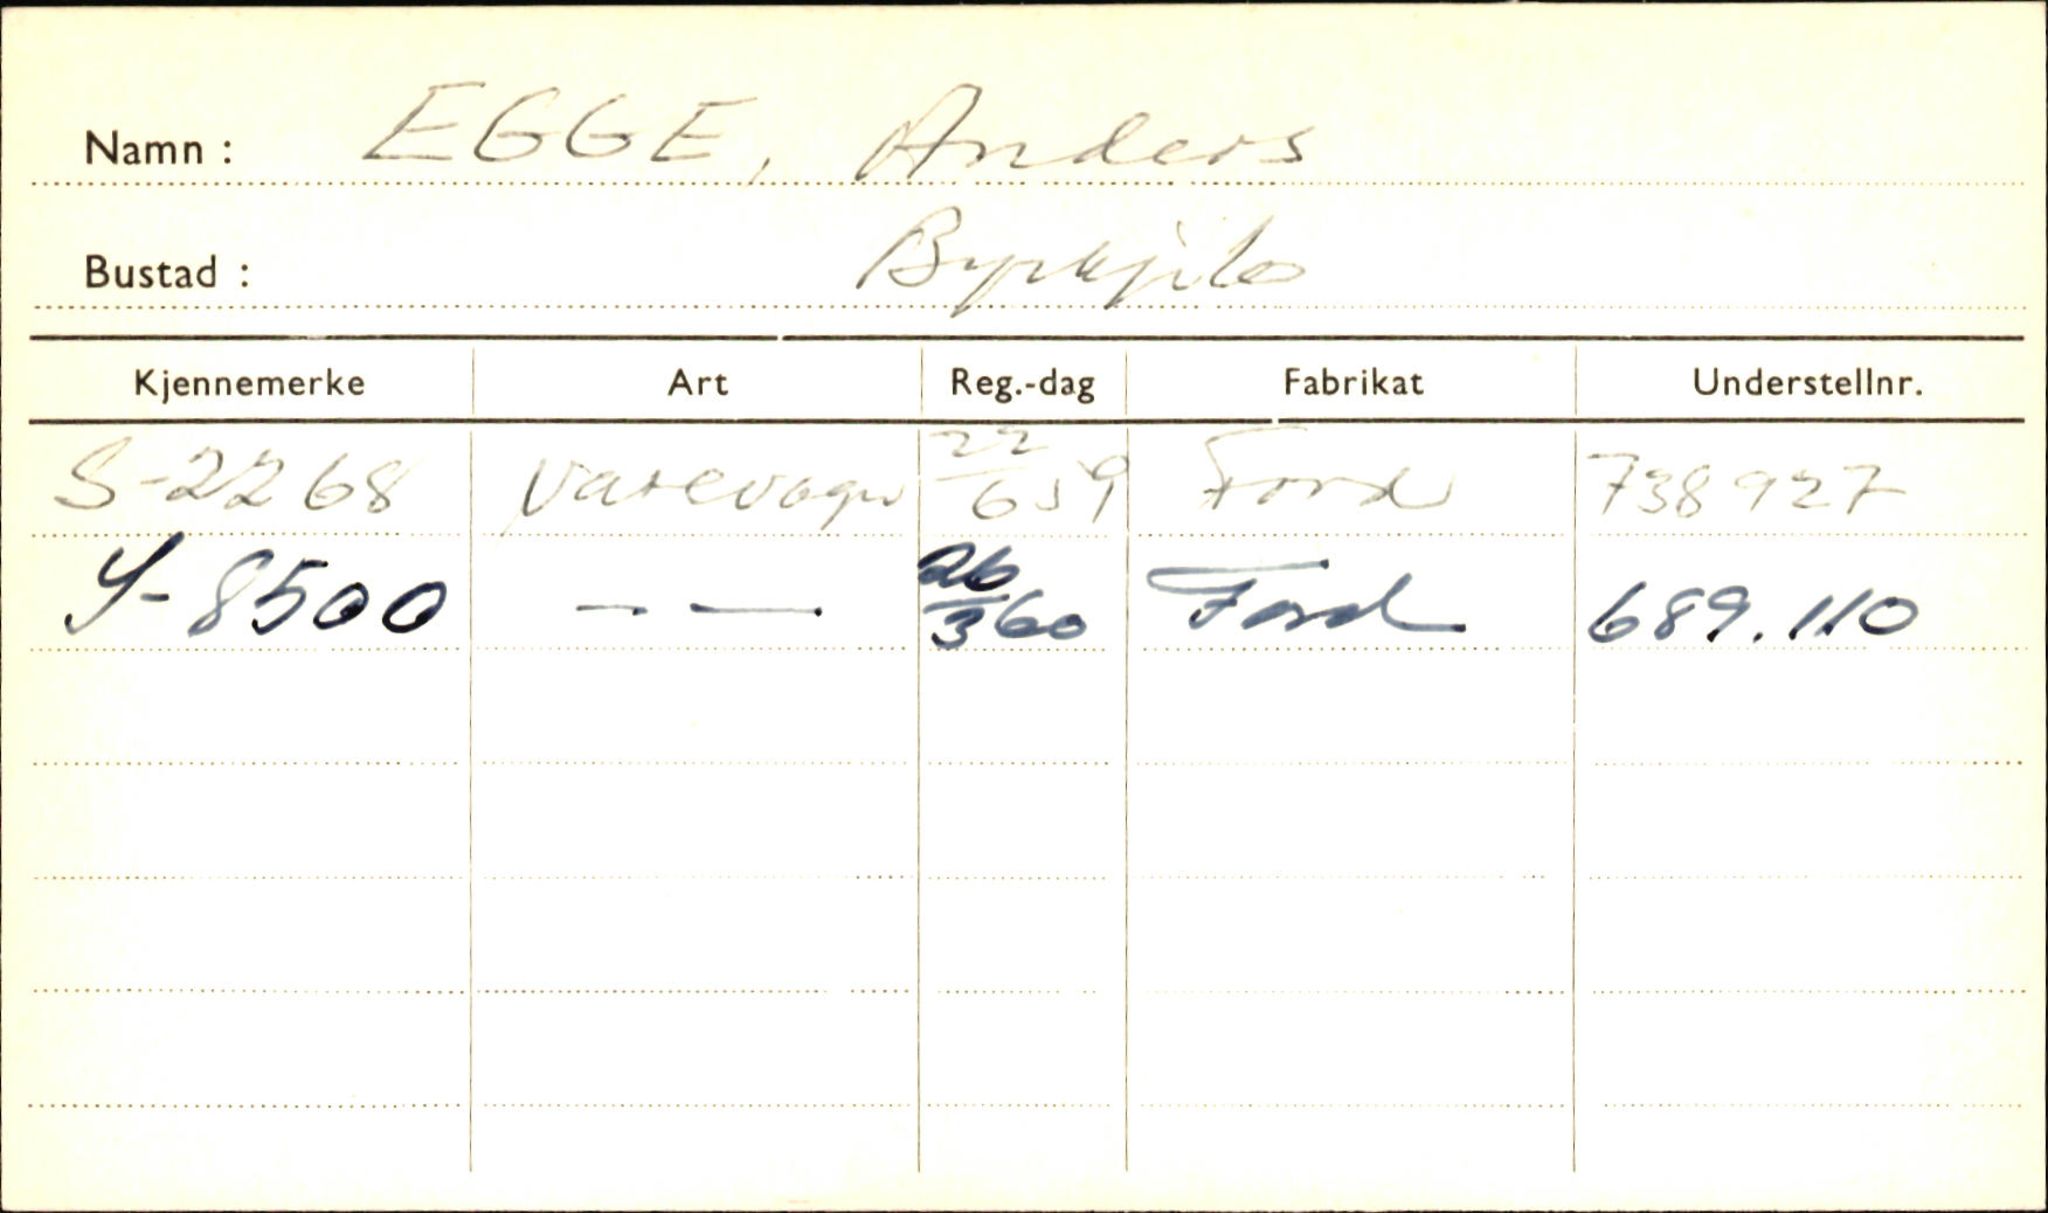 Namn : EGGE, Anders
Bustad : Byrkjelo
Kjennemerke Art Reg.-dag Fabrikat Understellnr.
S-2268 Varevogn 22/6 59 Ford 738927
S-8500 — — 26/3 60 Ford 689.110